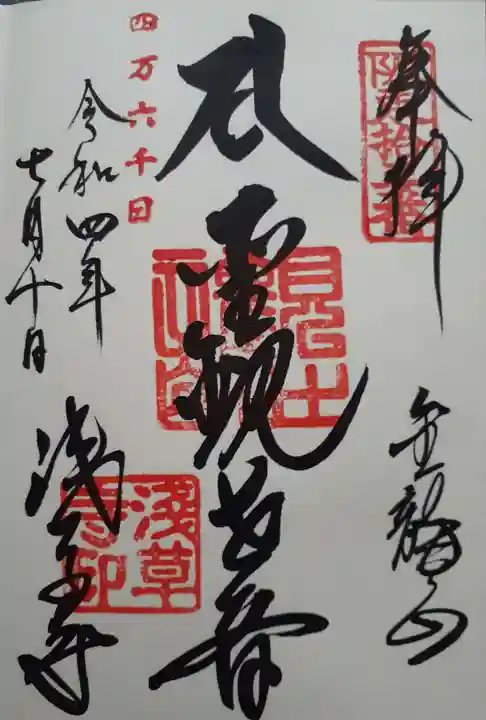 奉拝
金龍山
聖観世音
四万六千日
令和四年
七月十日
浅草寺
淺草
寺印